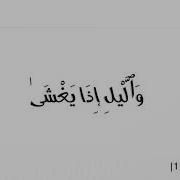 وَٱلَّيْلِ إِذَا يَغْشَىٰ
|1